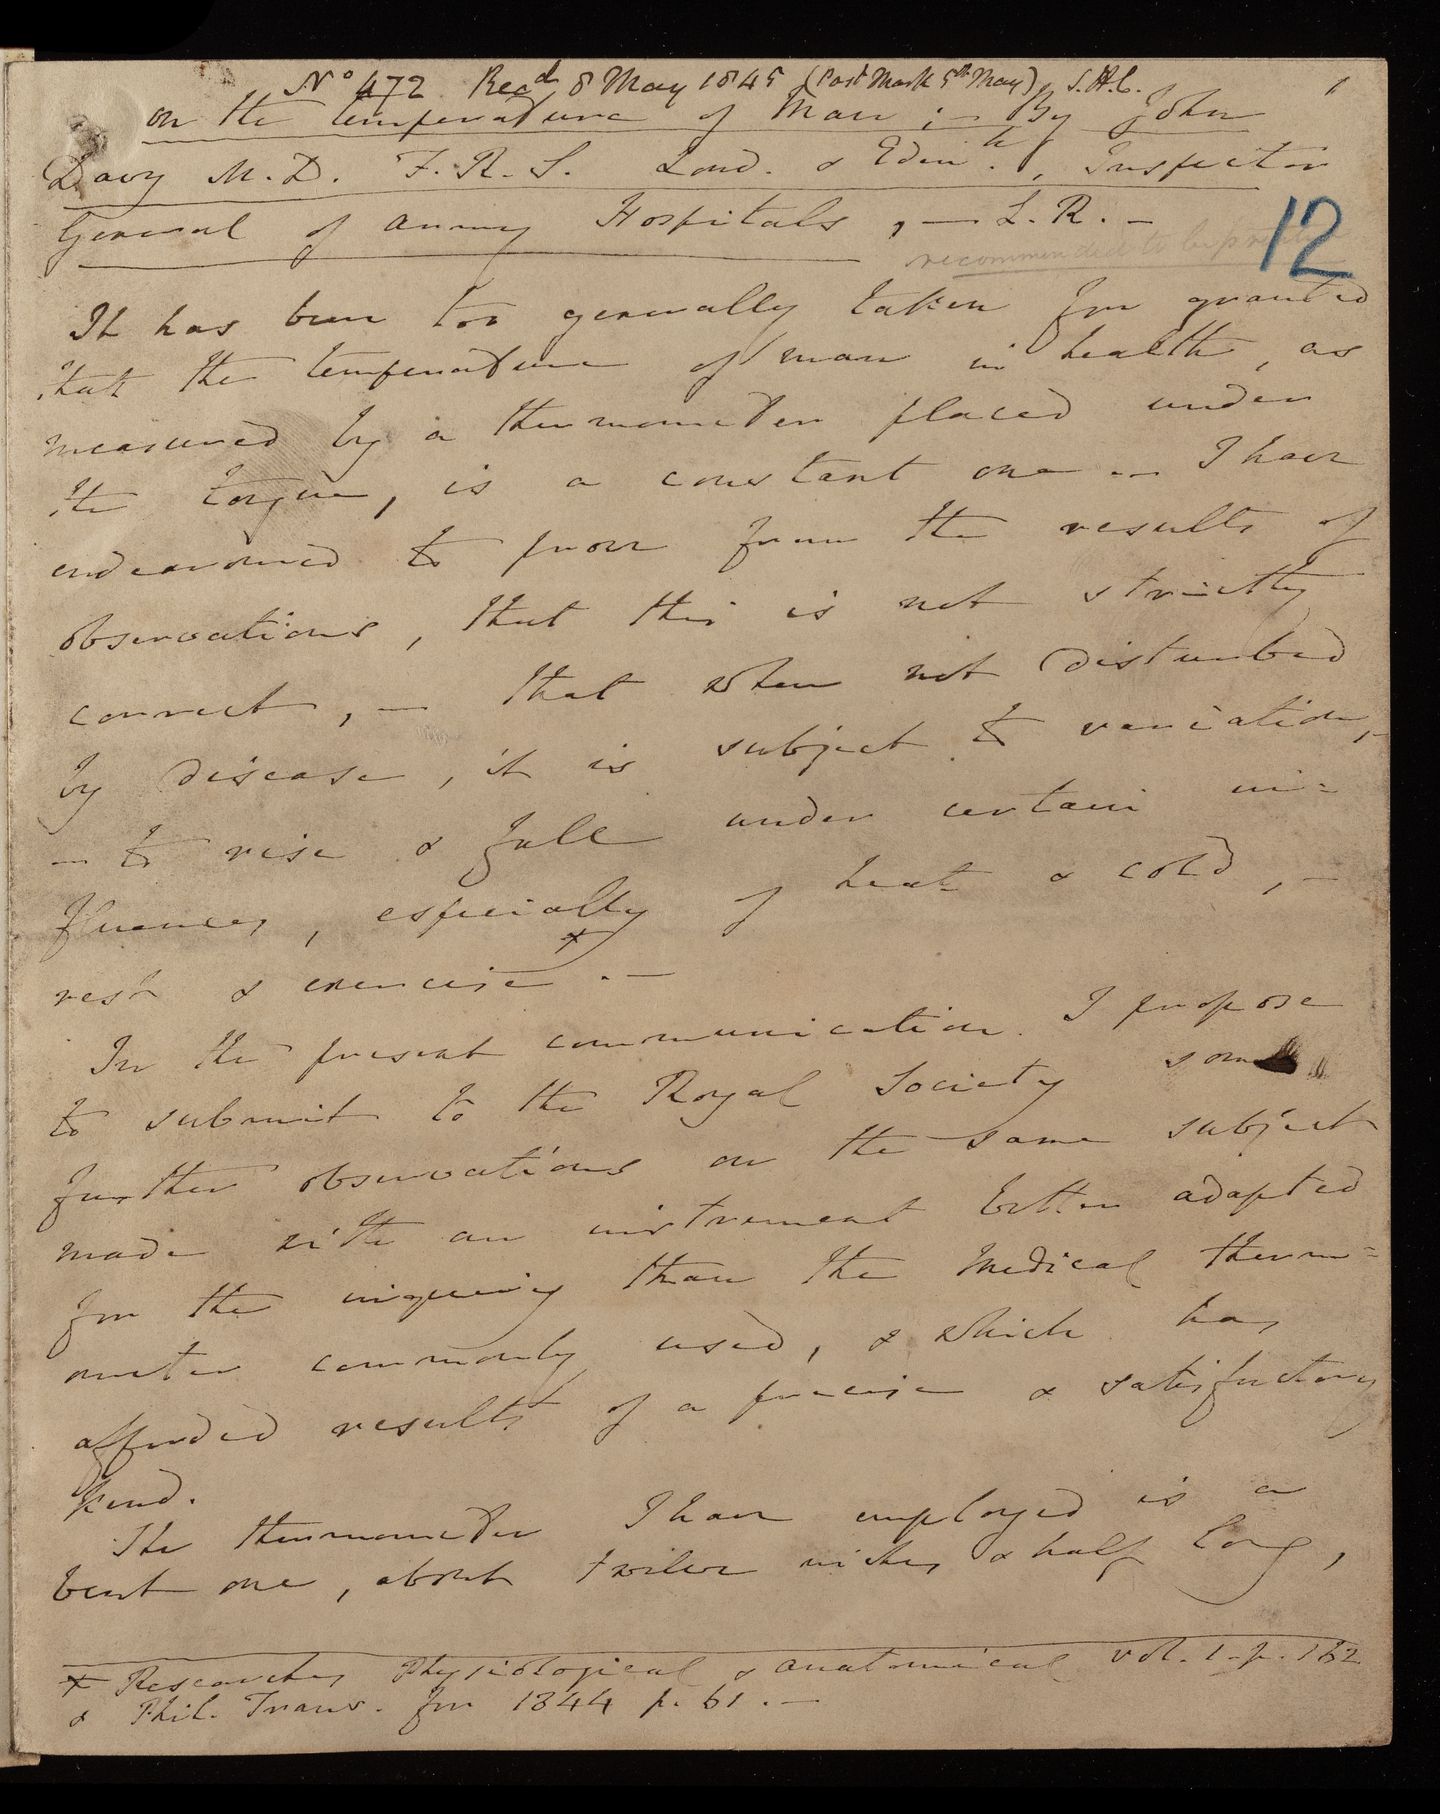 No 472 Recd 8 May 1845 (Post Mark 5th May) S.H.C. 1
on the temperature of Man ; — By John
Davy M.D. F.R.S. Lond. & Edinh., Inspector
General of army Hospitals , — L.R. —
12
recommended to be
It has been too generally taken for granted
that the temperature of man in health , as
measured by a thermometer placed under
the tongue, is a constant one — I have
endeavoured to prove from the results of
observations , that this is not strictly
correct , — that when not disturbed
by disease , it is subject to variation, —
— to rise & fall under certain in=
fluences , especially of heat & cold , —
rest & exercise x . —
In the present communication I propose
to submit to the Royal Society some
further observations on the same subject
made with an instrument better adapted
for the inquiry than the medical therm=
ometer commonly used, & which has
afforded results of a precise & satisfactory
kind.
The thermometer I have employed is a
bent one , about twelve inches & half long ,
x Researches Physiological & anatomical vol. 1. p. 162
& Phil. Trans. for 1844 p. 61 . —